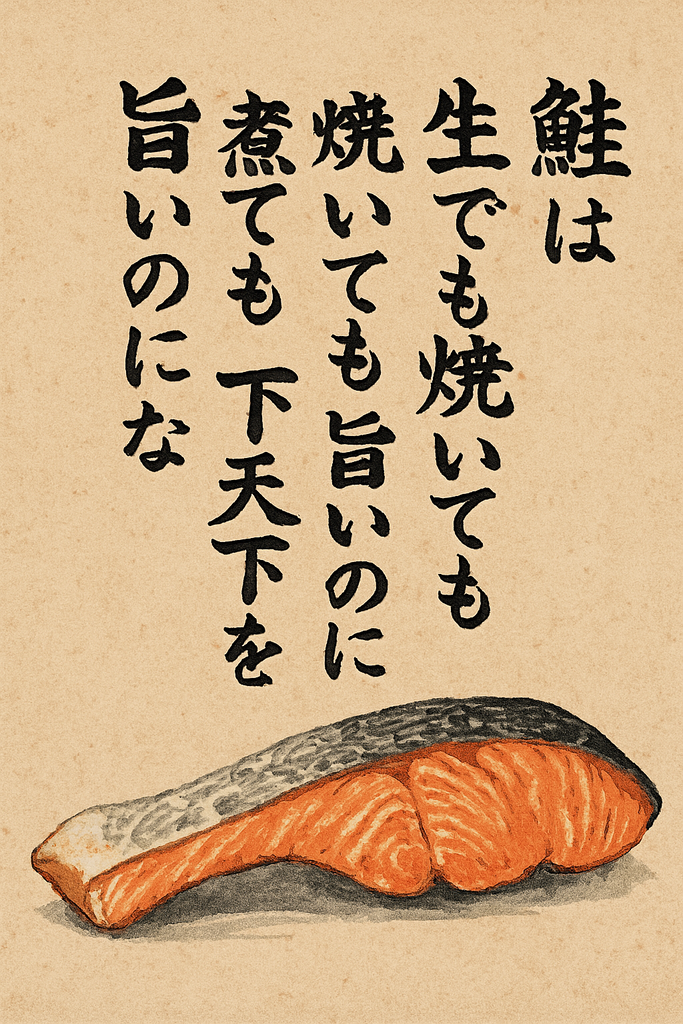 鮭は
生でも焼いても
焼いても旨いのに
煮ても 下天下を
旨いのにな